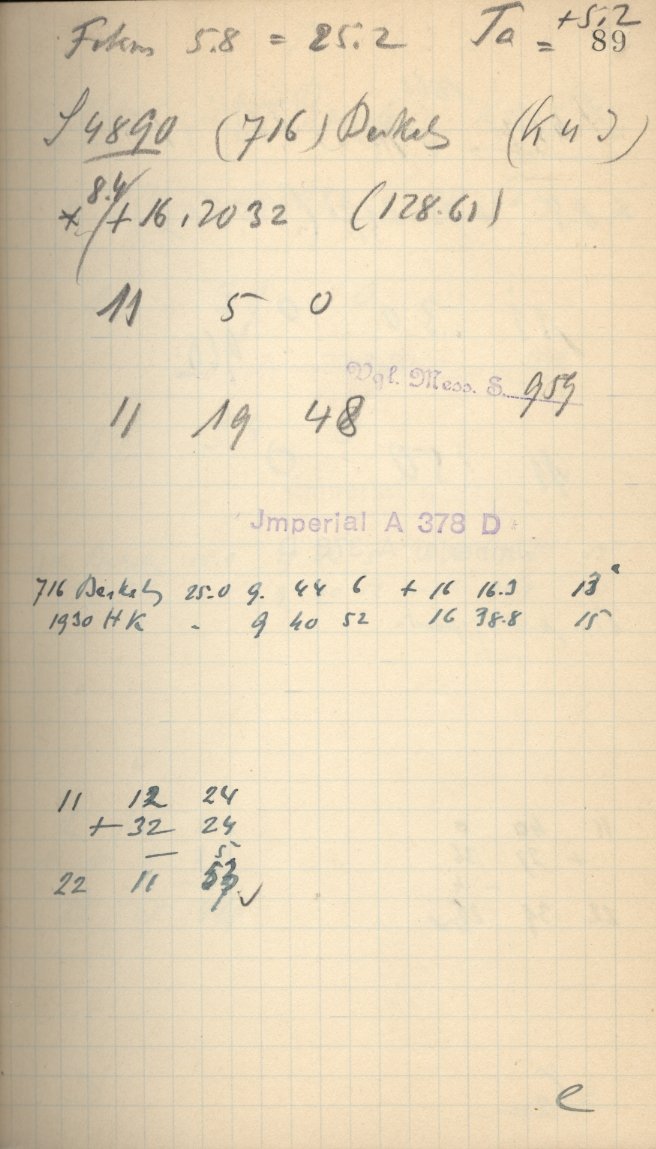 Fokus 5.8 = 25.2 Ta = +5.2
89
J 4890 (716) Berkeley (K 43)
* 8.4 +16.2032 (128.61)
11 5 0
Vgl. Mess. S. 959
11 19 48
Jmperial A 378 D
716 Berkeley 25.0 9. 44 6 + 16 16.3 13
1930 HK - 9 40 52 16 38.8 15
11 12 24
+ 32 24
— 5
22 11
e